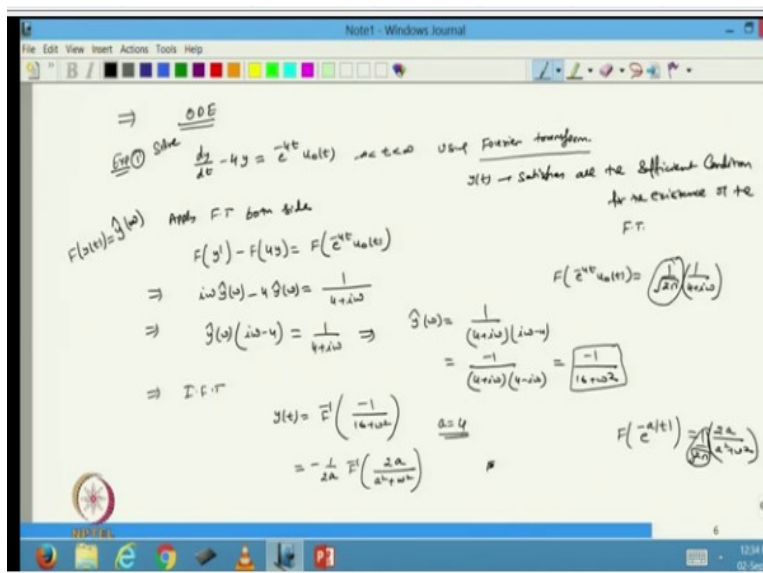 Note1 - Windows Journal
File Edit View Insert Actions Tools Help
B I
⇒ ODE
Exp ① Solve dy/dt - 4y = e^{-4t} u₀(t) -∞<t<∞ using Fourier transform
y(t) → satisfies all the sufficient condition
for the existence of the
F.T.
F(y(t)) = ŷ(ω) Apply F.T both side
F(y') - F(4y) = F(e^{-4t} u₀(t))
F(e^{-4t} u₀(t)) = 1/√2π (1/(4+iω))
⇒ iω ŷ(ω) - 4 ŷ(ω) = 1/(4+iω)
⇒ ŷ(ω) (iω-4) = 1/(4+iω) ⇒ ŷ(ω) = 1/((4+iω)(iω-4))
= -1/((4+iω)(4-iω)) = -1/(16+ω²)
⇒ I.F.T
y(t) = F⁻¹(-1/(16+ω²)) a=4
F(e^{-a|t|}) = 1/√2π (2a/(a²+ω²))
= -1/2a F⁻¹(2a/(a²+ω²))
NPTEL
6
12:34
02-Sep